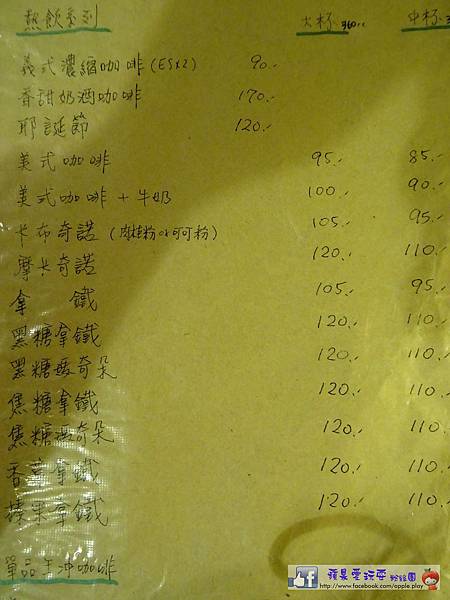 熱飲系列 大杯 360cc 中杯
義式濃縮咖啡(ESx2) 90.-
香甜奶酒咖啡 170.-
耶誕節 120.-
美式咖啡 95.- 85.-
美式咖啡+牛奶 100.- 90.-
卡布奇諾(肉桂粉or可可粉) 105.- 95.-
摩卡奇諾 120.- 110.-
拿 鐵 105.- 95.-
黑糖拿鐵 120.- 110.-
黑糖瑪奇朵 120.- 110.-
焦糖拿鐵 120.- 110.-
焦糖瑪奇朵 120.- 110.
香草拿鐵 120.- 110.-
榛果拿鐵 120.- 110.-
單品手沖咖啡
蘋果愛玩耍 粉絲團
http://www.facebook.com/apple.play